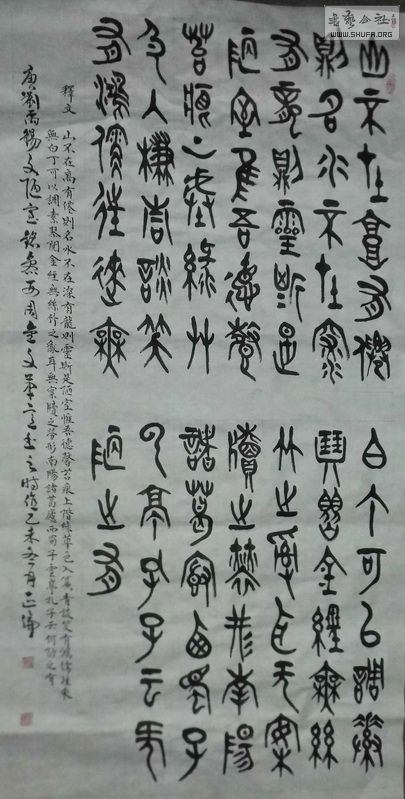 書藝公社
WWW.SHUFA.ORG
山不在高有僊
則名水不在深
有龍則靈斯是
陋室惟吾德馨
苔痕上階綠艸
色入簾青談笑
有鴻儒往來無
白丁可以調素
琴閱金經無絲
竹之亂耳無案
牘之勞形南陽
諸葛廬西蜀子
云亭孔子云何
陋之有
釋文
山不在高有僊則名水不在深有龍則靈斯是陋室惟吾德馨苔痕上階綠草色入簾青談笑有鴻儒往來
無白丁可以調素琴閱金經無絲竹之亂耳無案牘之勞形南陽諸葛廬西蜀子雲亭孔子云何陋之有
唐劉禹錫文陋室銘西周金文筆意書之時維乙未月